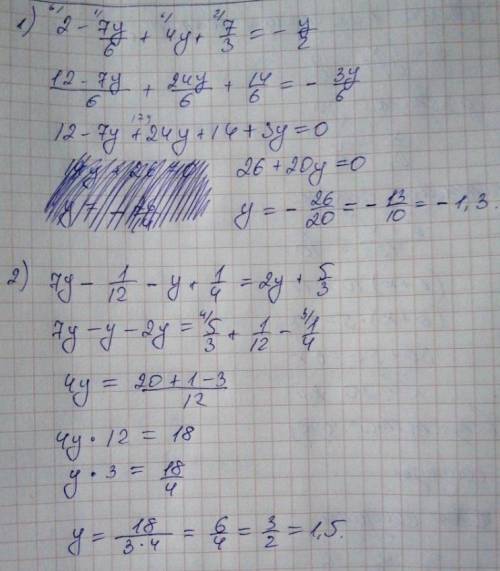 1) 2 - 7y/6 + 4y + 7/3 = - y/2
12 - 7y/6 + 24y/6 + 14/6 = - 3y/6
12 - 7y + 24y + 14 + 3y = 0
26 + 20y = 0
y = - 26/20 = - 13/10 = - 1,3.
2) 7y - 1/12 - y + 1/4 = 2y + 5/3
7y - y - 2y = 4/ 5/3 + 1/12 - 3/ 1/4
4y = 20 + 1 - 3/12
4y · 12 = 18
y · 3 = 18/4
y = 18/3·4 = 6/4 = 3/2 = 1,5.